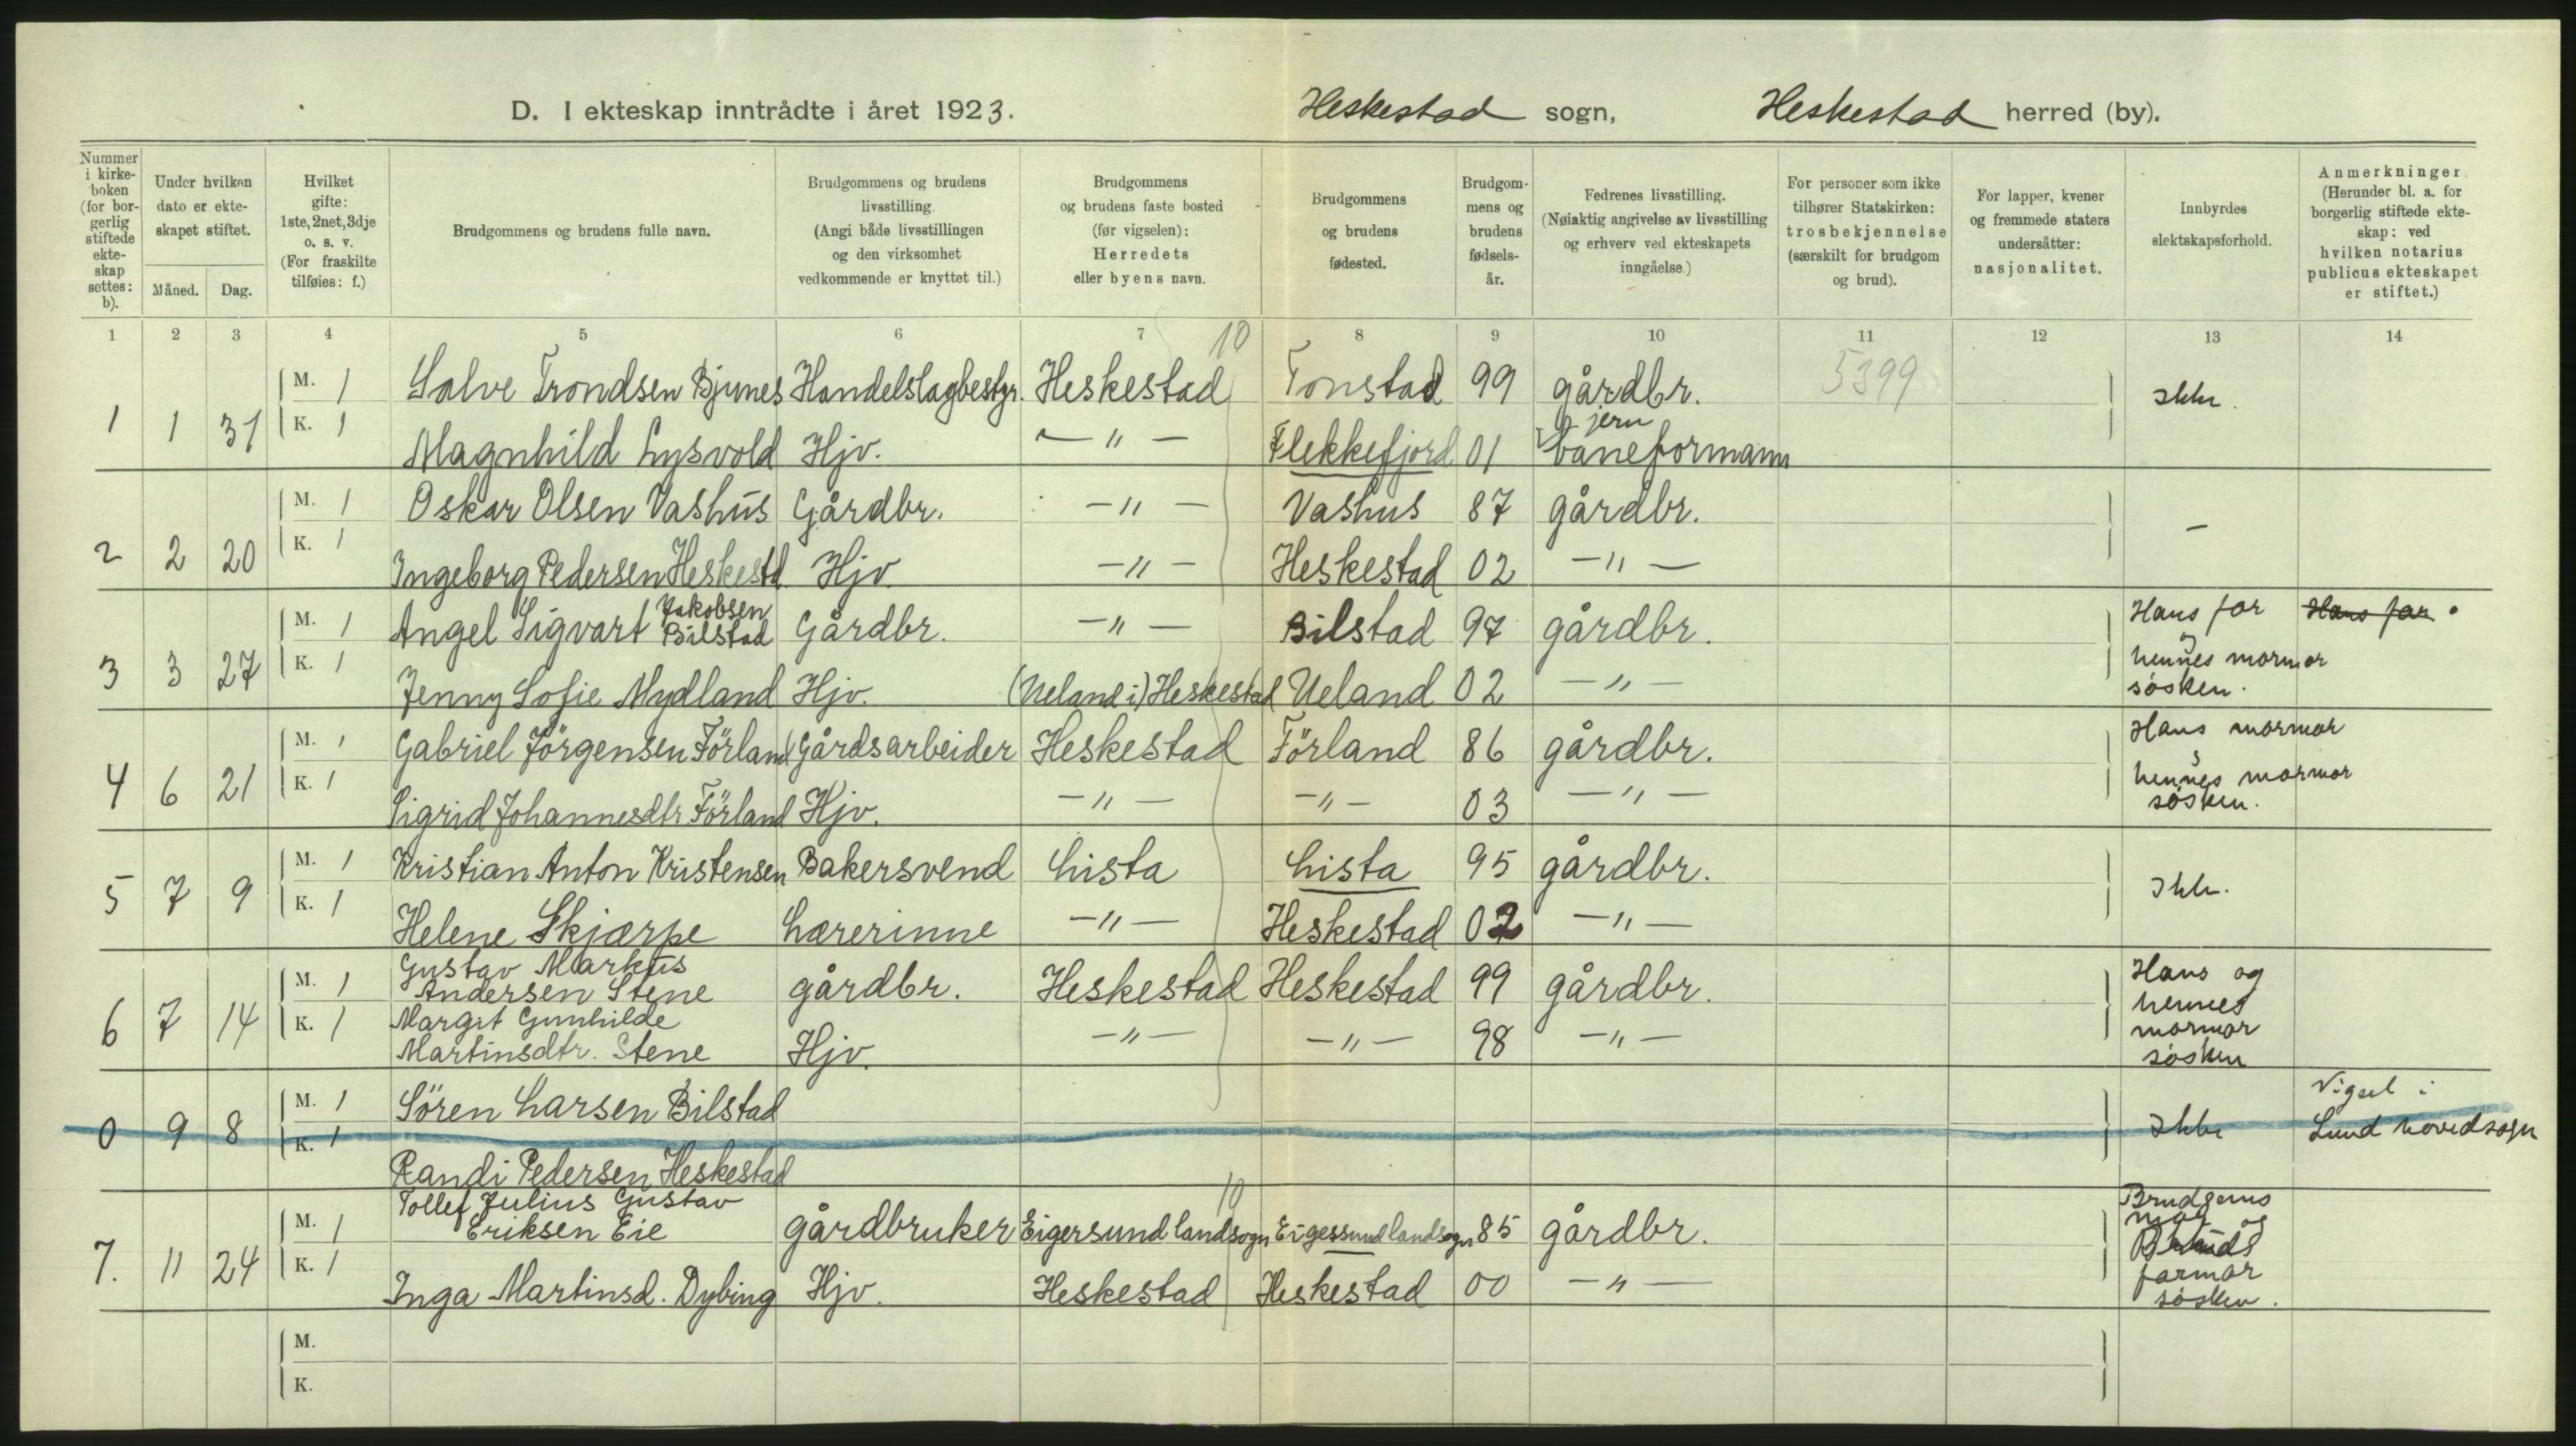 D. I ekteskap inntrådte i året 1923. Heskestad sogn, Heskestad herred (by).
Nummer i kirkeboken (for borgerlig stiftede ekteskap settes: b).
Under hvilken dato er ekteskapet stiftet. Måned. Dag.
Hvilket gifte: 1ste, 2net, 3dje o. s. v. (For fraskilte tilføies: f.)
Brudgommens og brudens fulle navn.
Brudgommens og brudens livsstilling. (Angi både livsstillingen og den virksomhet vedkommende er knyttet til.)
Brudgommens og brudens faste bosted (før vigselen): Herredets eller byens navn.
Brudgommens og brudens fødested.
Brudgommens og brudens fødselsår.
Fedrenes livsstilling. (Nøiaktig angivelse av livsstilling og erhverv ved ekteskapets inngåelse.)
For personer som ikke tilhører Statskirken: trosbekjennelse (særskilt for brudgom og brud).
For lapper, kvener og fremmede staters undersåtter: nasjonalitet.
Innbyrdes slektskapsforhold.
Anmerkninger. (Herunder bl. a. for borgerlig stiftede ekteskap: ved hvilken notarius publicus ekteskapet er stiftet.)
1 2 3 4 5 6 7 8 9 10 11 12 13 14
10
M. 1 Salve Trondsen Bjunes Handelslagbestyr. Heskestad Tonstad 99 gårdbr. 5399
1 1 31 K. 1 Ikke.
jern
Magnhild Lysvold Hjv. — " — Flekkefjord 01 baneformann
M. 1 Oskar Olsen Vashus Gårdbr. — " — Vashus 87 gårdbr.
2 2 20 K. 1 —
Ingeborg Pedersen Heskestd. Hjv. — " — Heskestad 02 — " —
Jakobsen
M. 1 Angel Sigvart Bilstad Gårdbr. — " — Bilstad 97 gårdbr. Hans far Hans far.
og
3 3 27 K. 1 hennes mormor
Jenny Sofie Mydland Hjv. (Ueland i) Heskestad Ueland 02 — " — søsken.
M. 1 Gabriel Jörgensen Förland Gårdsarbeider Heskestad Förland 86 gårdbr. Hans mormor
4 6 21 K. 1 hennes mormor
Sigrid Johannesdtr Förland Hjv. — " — — " — 03 — " — søsken.
M. 1 Kristian Anton Kristensen Bakersvend Lista Lista 95 gårdbr.
5 7 9 K. 1 Ikke.
Helene Skjærpe Lærerinne — " — Heskestad 02 — " —
Gustav Markus
M. 1 Andersen Stene gårdbr. Heskestad Heskestad 99 gårdbr. Hans og
hennes
6 7 14 K. 1 Margit Gunhilde mormor
Martinsdtr. Stene Hjv. — " — — " — 98 — " — søsken
M. 1 Sören Larsen Bilstad Vigsel i
0 9 8 K. 1 Ikke Lund hovedsogn
Randi Pedersen Heskestad
Tollef Julius Gustav 10 Brudgoms
M. 1 Eriksen Eie gårdbruker Eigersund landsogn Eigessund landsogn 85 gårdbr. mor og
7. 11 24 K. 1 Bruds
farmor
Inga Martinsd. Dybing Hjv. Heskestad Heskestad 00 — " — søsken.
M.
K.